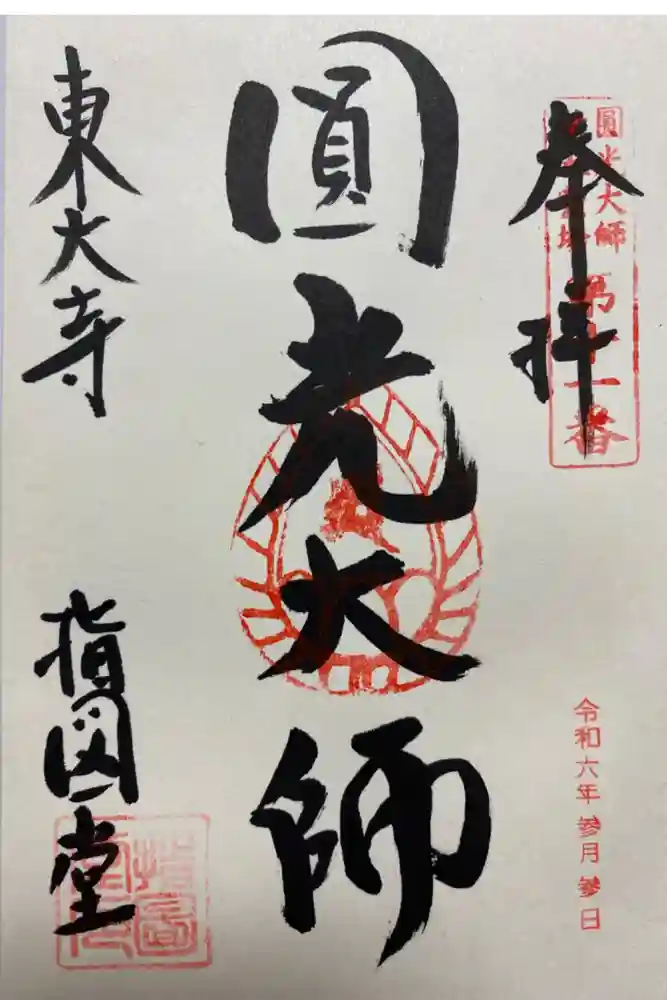 奉拝
圓光大師
第十一番
令和六年 参月 参日
圓光大師
東大寺
指図堂